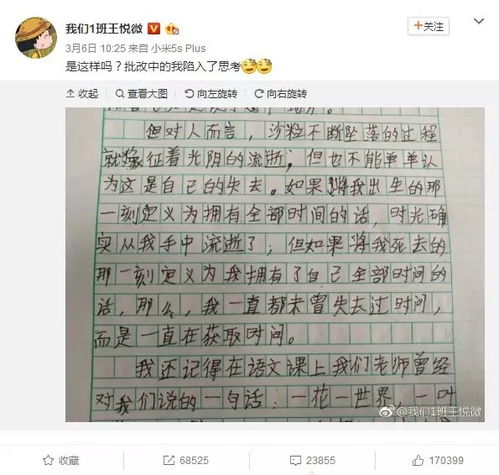 我们1班王悦微
+关注
3月6日 10:25 来自 小米5s Plus
是这样吗？批改中的我陷入了思考
收起 查看大图 向左旋转 向右旋转
但对人而言，沙粒不断坠落的过程
就像征着光阴的流逝，但也不能单单认
为这是自己的失去。如果将我出生的那
一刻定义为拥有全部时间的话，时光确
实从我手中流逝了，但如果将我死去的
那一刻定义为我拥有了自己全部时间的
话，那么，我一直都未曾失去过时间，
而是一直在获取时间。
我还记得在语文课上我们老师曾经
对我们说的一句话：一花一世界，一叶
@我们1班王悦微
收藏 68525 23855 170399